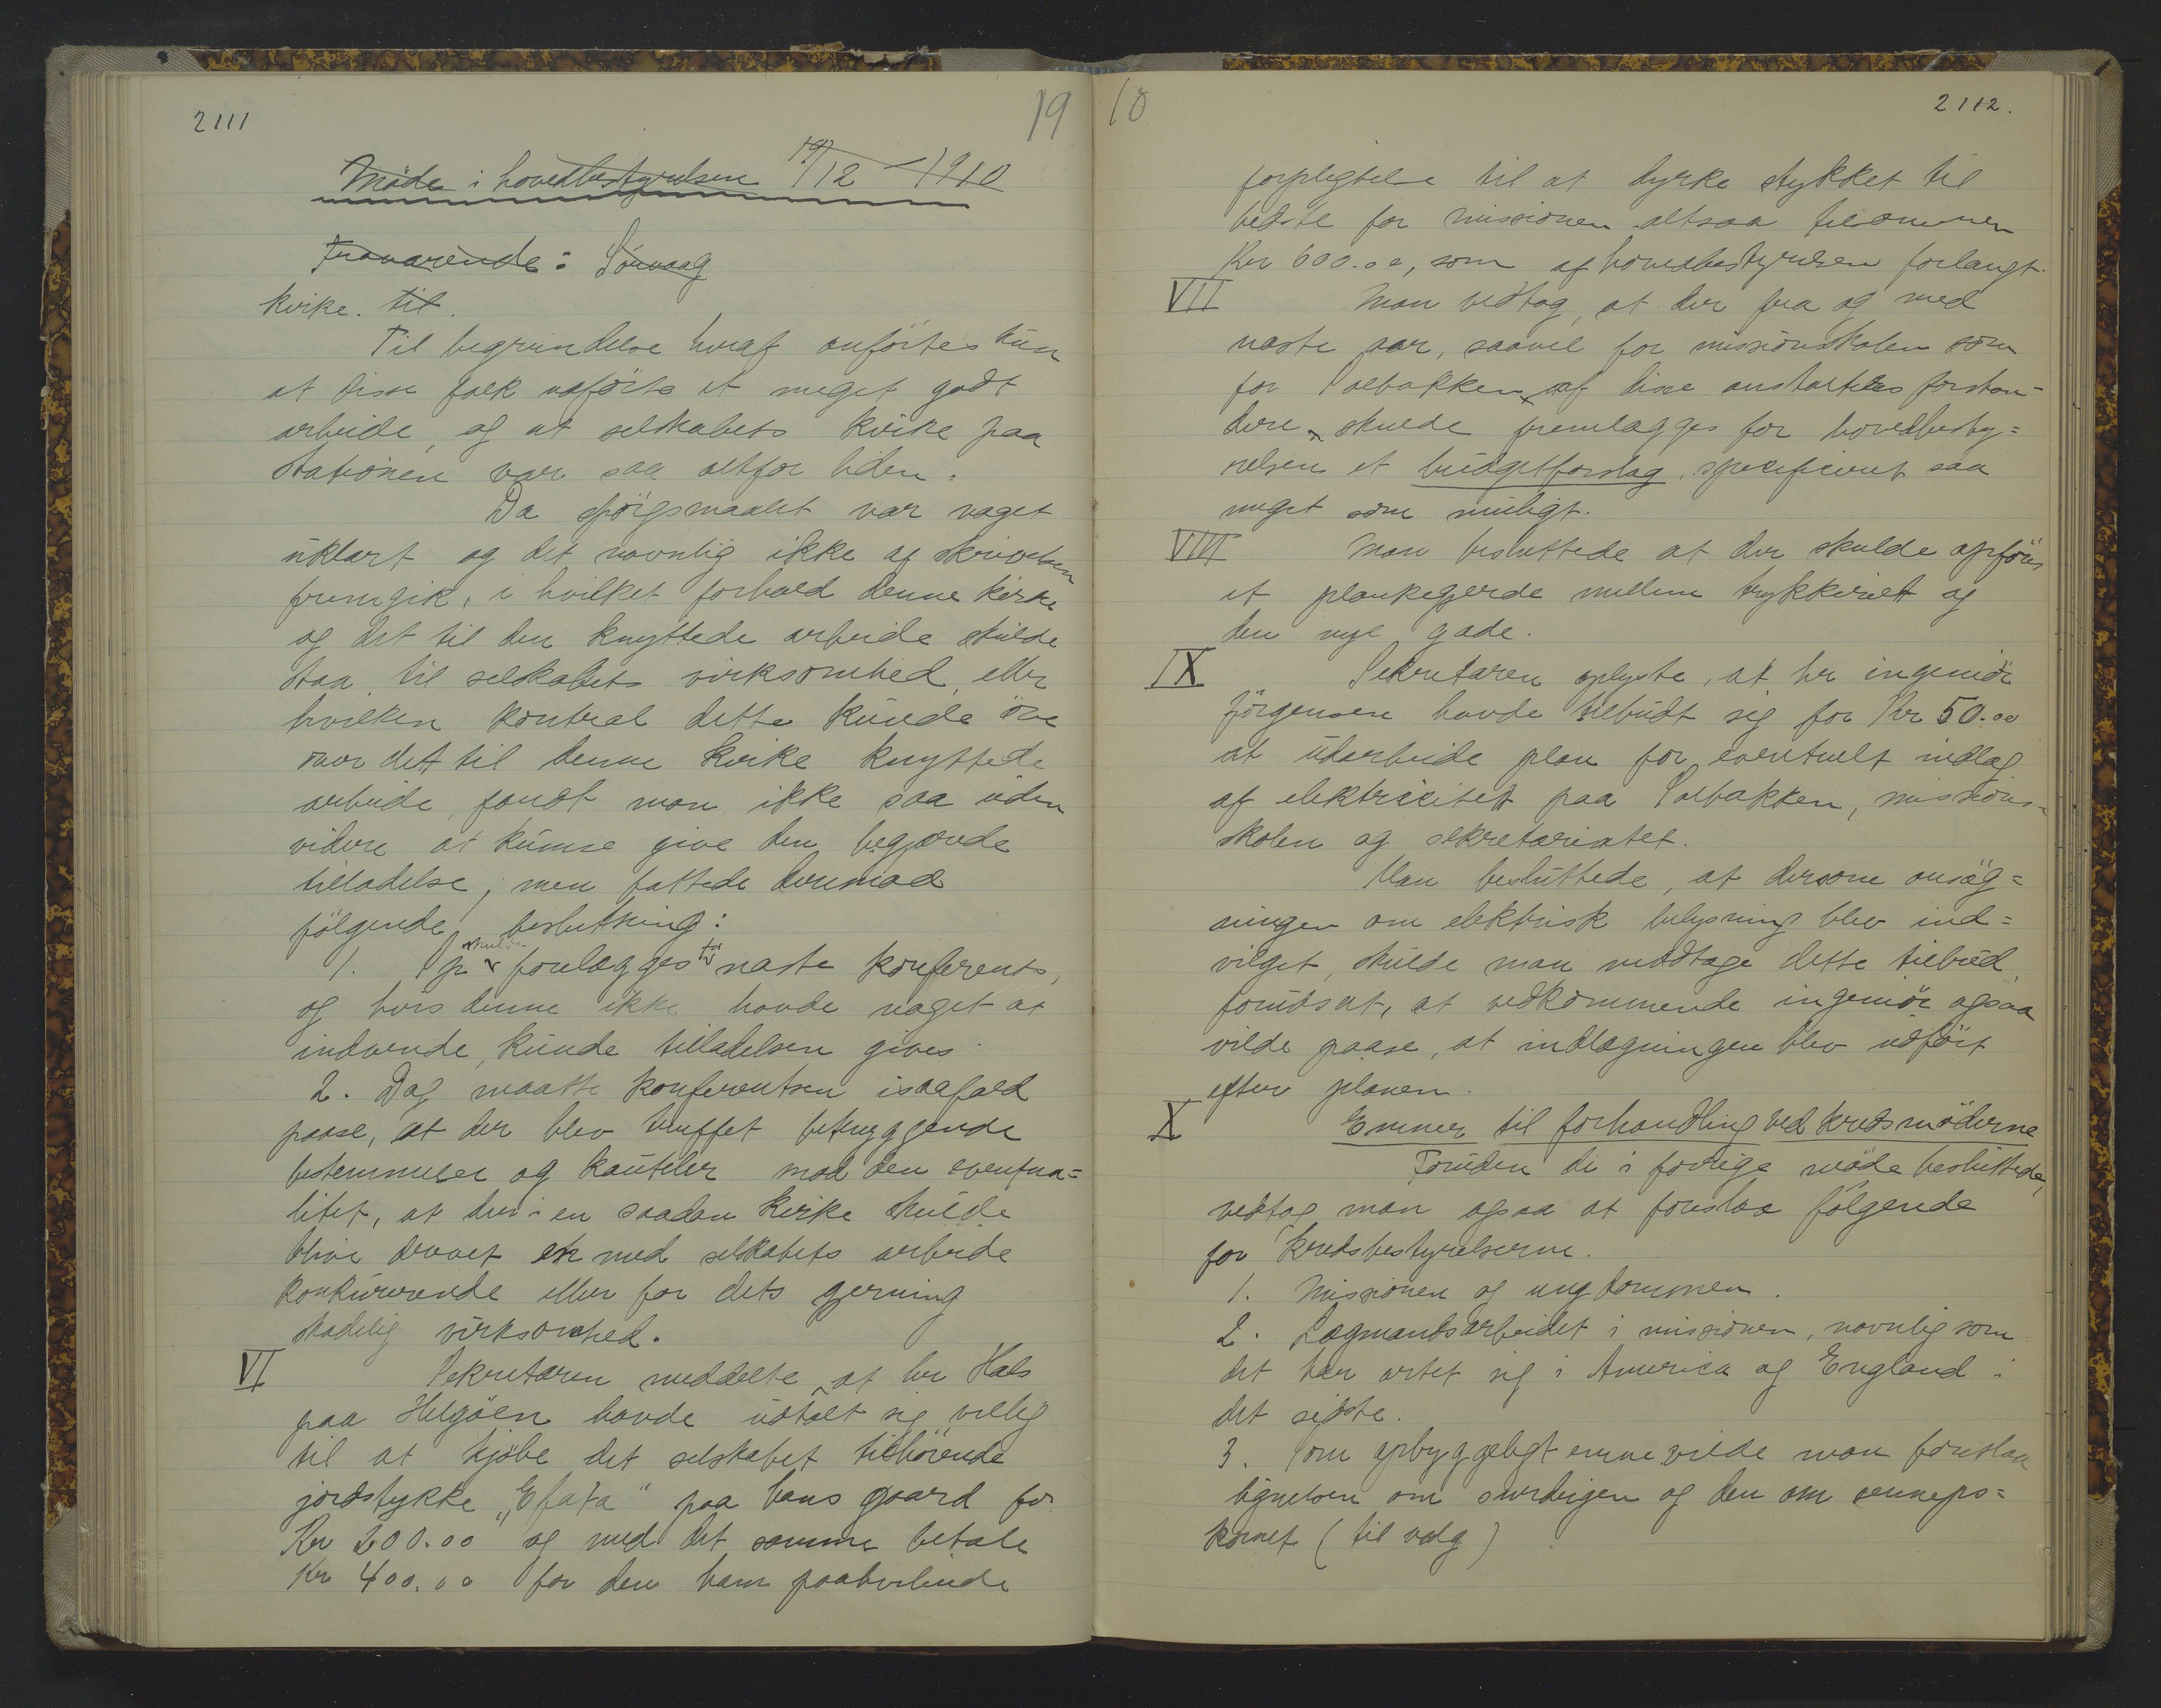 2111
19
Möde i hovedbestyrelsen 19/12 - 1910
Fraværende: Sörvaag
kirke. til.
Til begrundelse heraf anförtes kun
at disse folk udförte et meget godt
arbeide, og at selskabets kirke paa
stationen var saa altfor liden.
Da spörgsmaalet var noget
uklart og det navnlig ikke af skrivelsen
fremgik, i hvilket forhold denne kirke
og det til den knyttede arbeide skulde
staa til selskabets virksomhed, eller
hvilken kontrol dette kunde öve
over det til denne kirke knyttede
arbeide, fandt man ikke saa uden
videre at kunne give den begjærede
tilladelse, men fattede derimod
fölgende beslutning:
1. Sp skulde forelægges for næste konferents,
og hvis denne ikke havde noget at
indvende, kunde tilladelsen gives
2. Dog maatte konferentsen isaafald
paase, at der blev truffet betryggende
bestemmelser og kauteler mod den eventua=
litet, at der i en saadan kirke skulde
blive drevet en med selskabets arbeide
konkurerende eller for dets gjerning
skadelig virksomhed.
VI Sekretæren meddelte at hr Hals
paa Helgöen havde udtalt sig villig
til at kjöbe det selskabet tilhörende
jordstykke "Efata" paa hans gaard for
Kr 200.00 og med det samme betale
Kr 400.00 for den ham paahvilende
10
2112.
forpligtelse til at dyrke stykket til
bedste for missionen altsaa tilsammen
Kr 600.00, som af hovedbestyrelsen forlangt.
VII Man vedtog, at der fra og med
næste aar, saavel for missionsskolen som
for Solbakken, af disse anstalters forstan=
dere skulde fremlægges for hovedbesty=
relsen et budgetforslag, specificeret saa
meget som muligt.
VIII Man besluttede at der skulde opföres
et plankegjerde mellem trykkeriet og
den nye gade.
IX Sekretæren oplyste, at hr ingeniör
Jörgensen havde tilbudt sig for Kr 50.00
at udarbeide plan for eventuelt indlæg
af elektricitet paa Solbakken, missions=
skolen og sekretariatet.
Man besluttede, at dersom ansög=
ningen om elektrisk belysning blev ind=
vilget, skulde man modtage dette tilbud,
forudsat, at vedkommende ingeniör ogsaa
vilde paase, at indlægningen blev udfört
efter planen.
X Emner til forhandling ved kredsmöderne
Foruden de i forrige möde besluttede,
vedtog man ogsaa at foreslaa fölgende
for kredsbestyrelserne.
1. Missionen og ungdommen.
2. Lægmandsarbeidet i missionen, navnlig som
det har artet sig i America og England i
det sidste.
3. Som opbyggeligt emne vilde man foreslaa
lignelsen om surdeigen og den om senneps=
kornet (til valg)